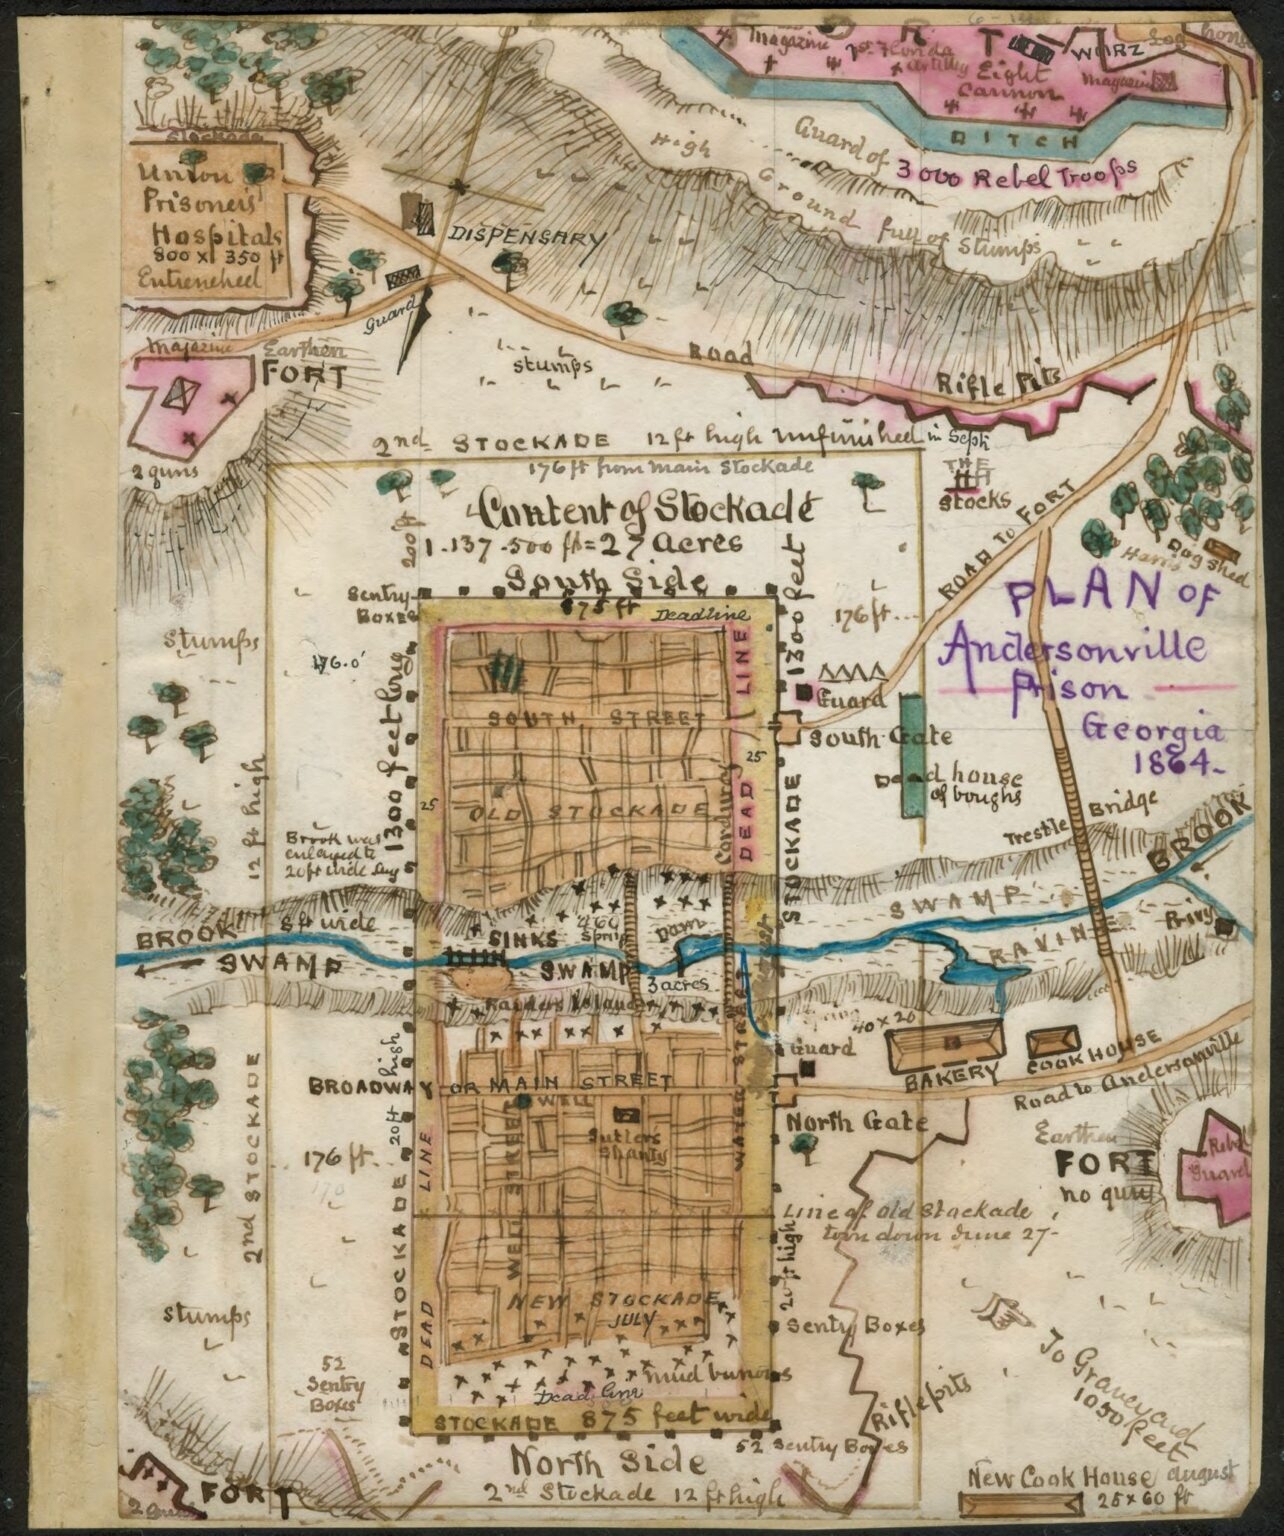 FORT
Magazine
1st Florida
Artillery
Eight
Cannon
WURZ
Magazine
Log house
DITCH
Guard of
3000 Rebel Troops
High
Ground full of Stumps
Stockade
Union
Prisoners'
Hospitals
800 x 350 ft
Entrenched
DISPENSARY
Guard
Magazine
Earthen
FORT
2 guns
Stumps
Road
Rifle Pits
2nd STOCKADE 12 ft high Unfinished in Sept
176 ft from main Stockade
THE
Stocks
Content of Stockade
1.137.500 ft = 27 Acres
South Side
875 ft
Deadline
200 ft
Sentry
Boxes
1300 feet
176 ft
ROAD TO FORT
Harris Dog shed
PLAN OF
Andersonville
Prison
Georgia
1864.
Stumps
176.0'
Guard
South Gate
SOUTH STREET
DEAD LINE
25
25
OLD STOCKADE
Corduroy
Dead house
of boughs
1300 feet long
12 ft high
STOCKADE
Trestle Bridge
BROOK
Brook was
enlarged to
20 ft wide Aug
8 ft wide
BROOK
SWAMP
SWAMP
RAVINE
Privy
SINKS
Spring
Dam
SWAMP
3 acres
Raiders Island
Spring
40 x 20
Guard
BAKERY
COOK HOUSE
Road to Andersonville
BROADWAY OR MAIN STREET
20 ft high
WELL
Sutler's
Shanty
WELL STREET
WATER STREET
North Gate
Earthen
FORT
no guns
Rebel
Guard
2nd STOCKADE
176 ft.
STOCKADE
DEAD LINE
Line of Old Stockade
torn down June 27-
20 ft high
NEW STOCKADE
JULY
Sentry Boxes
Stumps
52
Sentry
Boxes
Dead line
STOCKADE 875 feet wide
Rifle pits
To Graveyard
1050 feet
52 Sentry Boxes
North Side
2nd Stockade 12 ft high
FORT
2 guns
New Cook House August
25 x 60 ft